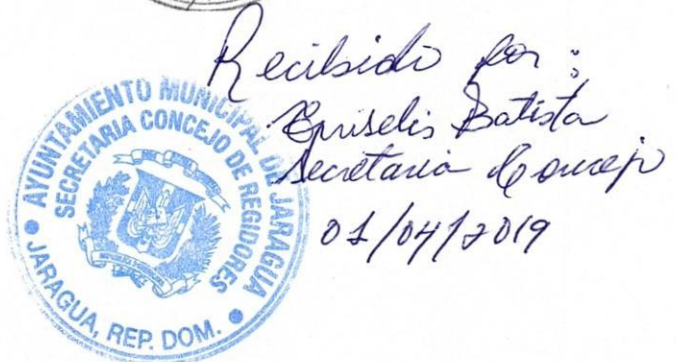 Recibido por:
Eriselis Batista
Secretaria Concejo
01/04/2019
AYUNTAMIENTO MUNICIPAL DE JARAGUA
SECRETARIA CONCEJO DE REGIDORES
JARAGUA, REP. DOM.